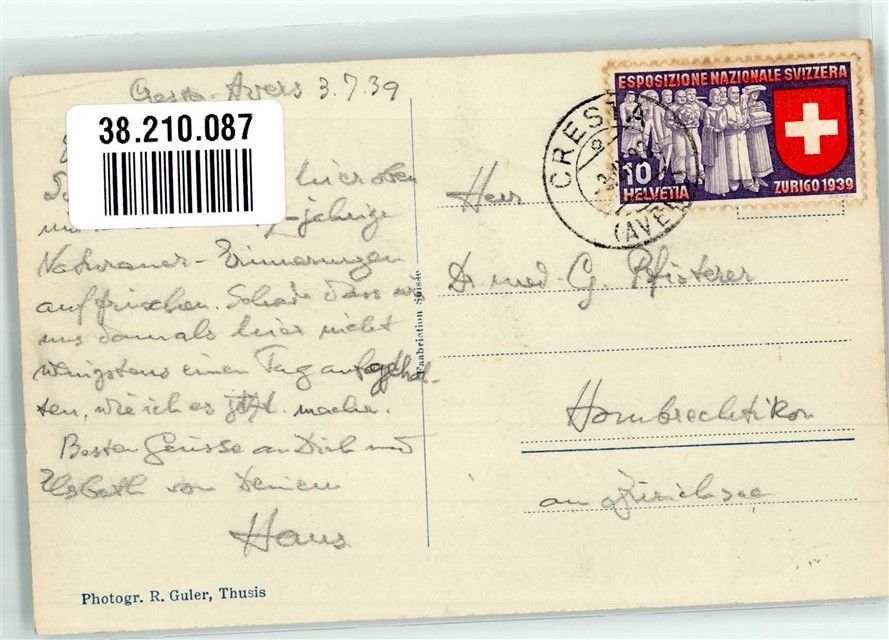 Cresta-Avers 3.7.39
38.210.087
hier oben
-jährige
Erinnerungen
auffrischen. Schade dass wir
uns damals hier nicht
wenigstens einen Tag aufgehal-
ten, wie ich es jetzt mache.
Besten Grüsse an Dich und
Elsbeth von Deinem
Hans
Photogr. R. Guler, Thusis
Fabrication Suisse
ESPOSIZIONE NAZIONALE SVIZZERA
10
HELVETIA
ZURIGO 1939
CRESTA
(AVERS)
Herr
Dr med. G. Pfisterer
Hombrechtikon
am Zürichsee